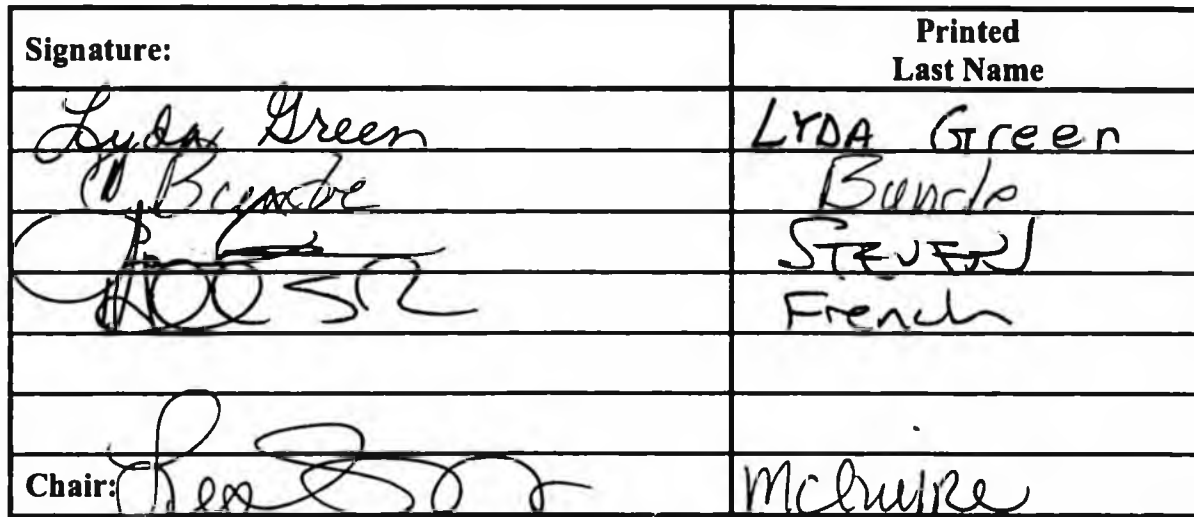 Signature:
Printed
Last Name
Lyda Green
LYDA Green
Bunde
STEVENS
French
Chair:
McGuire